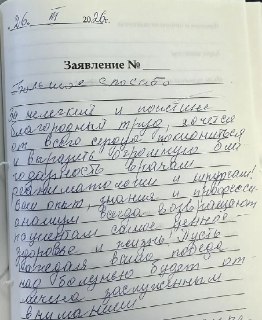 26. III 2026г.
Заявление №
Большое спасибо
За нелегкий и поистине
благородный труд, хочется
от всего сердца поклониться
и выразить огромную бла
годарность врачам
реаниматологии и хирургам!
Ваш опыт, знания и професси
онализм всегда возвращают
пациентам самое ценное -
здоровье и жизнь! Пусть
каждая ваша победа
над болезнью будет от
мечена заслуженным
вниманием